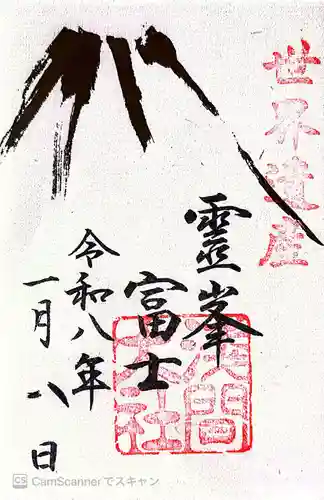 世界遺産
靈峯
富士
淺間
大社
令和八年
一月八日
CS CamScannerでスキャン